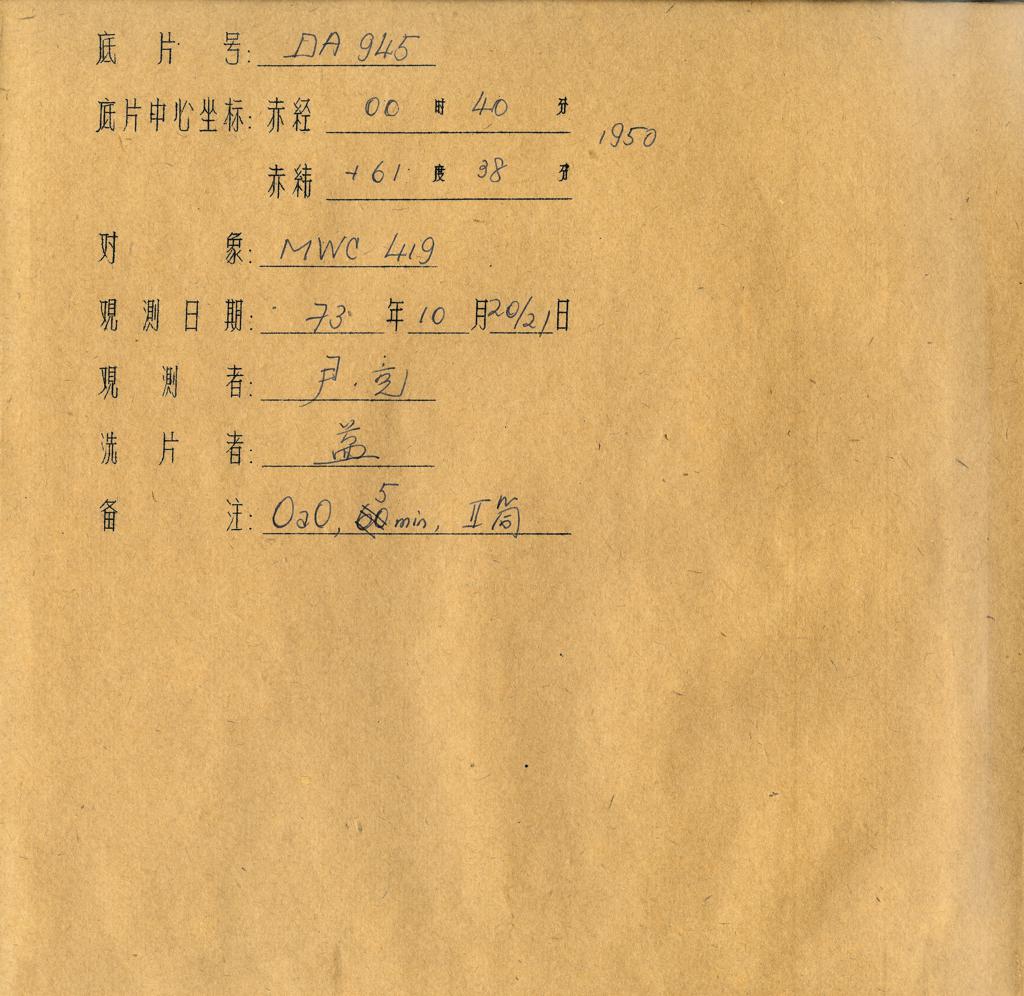 底片号: DA 945
底片中心坐标: 赤经 00 时 40 分
1950
赤纬 +61 度 38 分
对象: MWC 419
观测日期: 73 年 10 月 20/21 日
观测者: 尹. 亮
洗片者: 益
备注: OaO, 5 min, II 筒